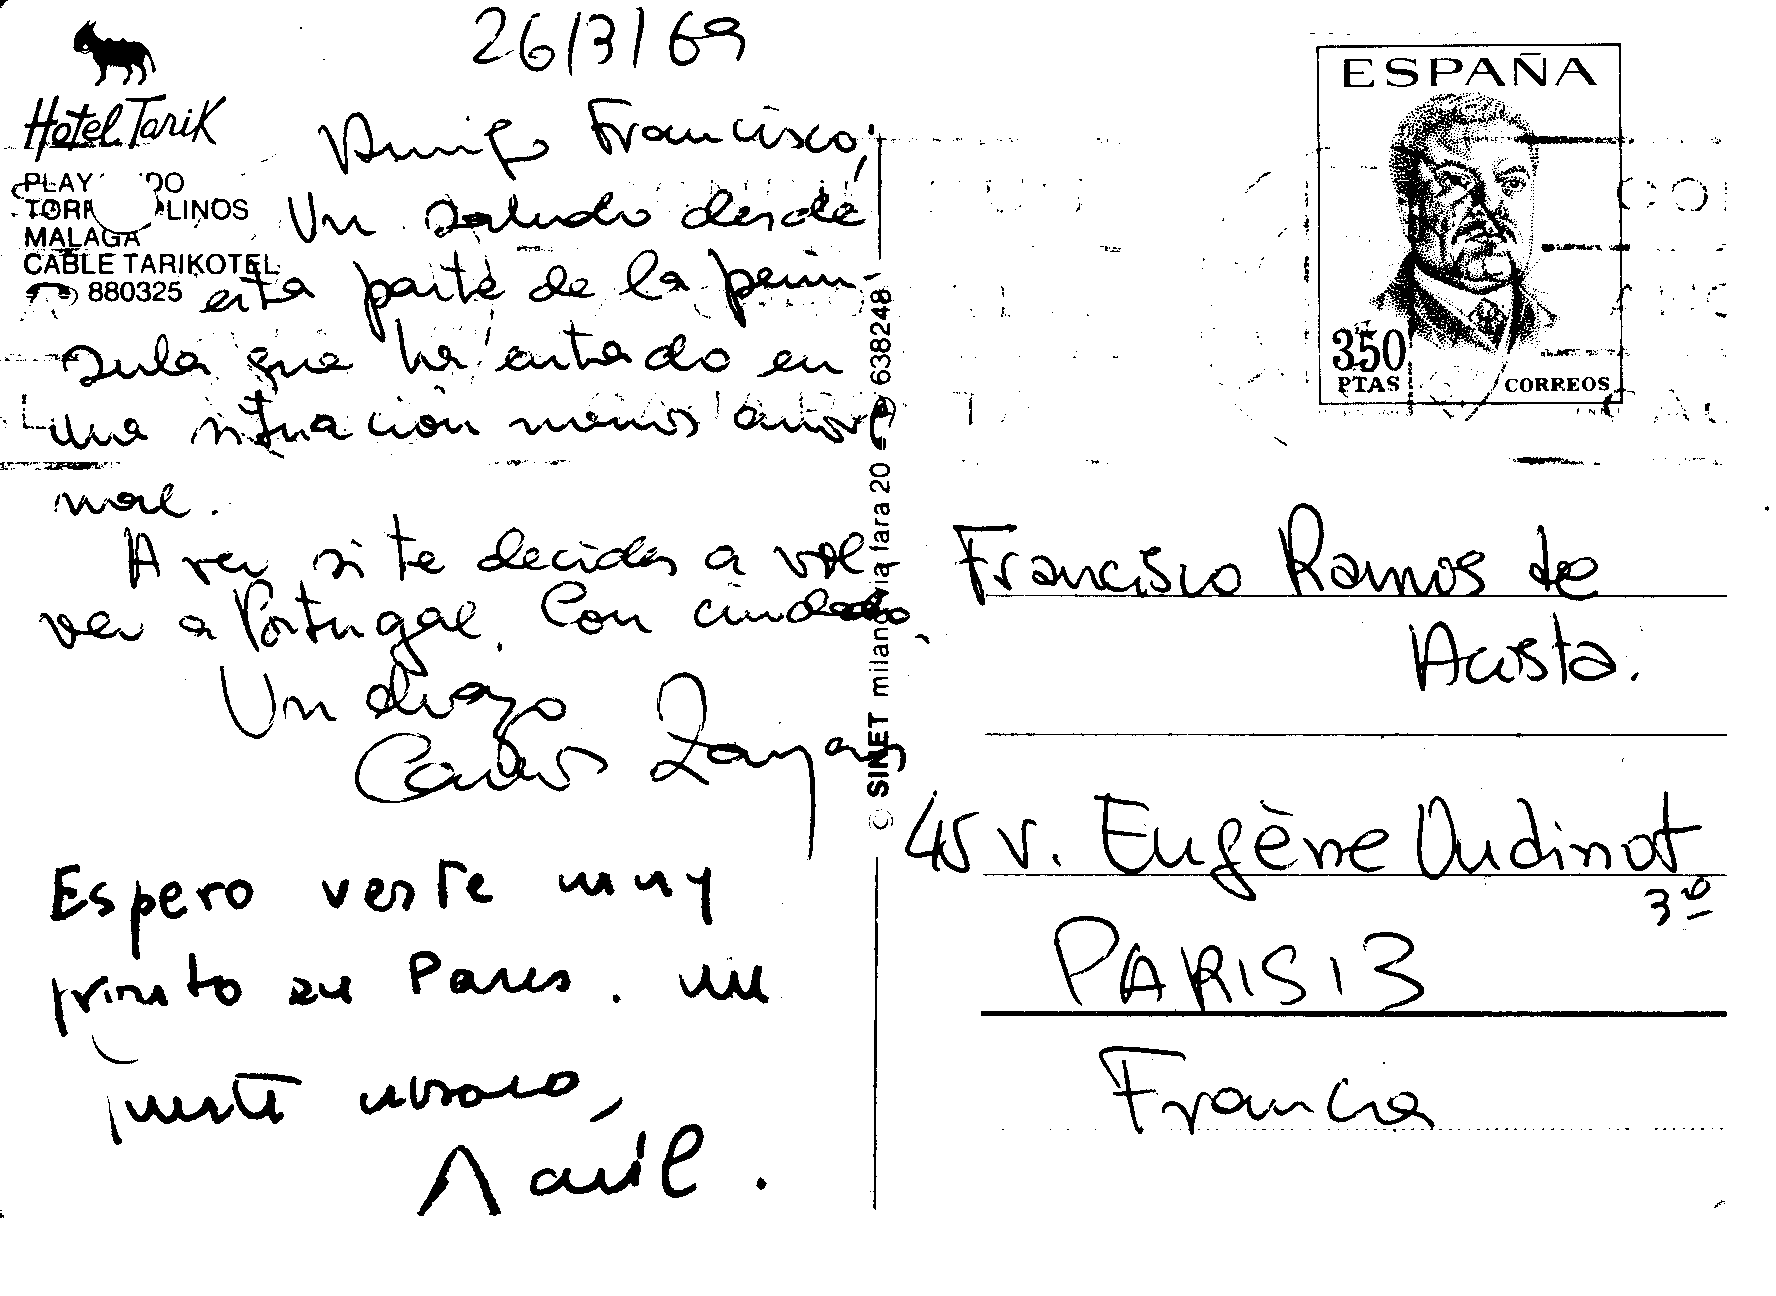 26/3/69
Hotel Tarik
MALAGA
CABLE TARIKOTEL
880325
Amigo Francisco,
Un saludo desde
esta parte de la penin-
sula que ha estado en
una situación menos anor-
mal.
A ver si te decides a vol-
ver a Portugal. Con cuidado.
Un abrazo
Carlos
Espero verte muy
pronto en Paris. un
fuerte abrazo,
SINET milano via fara 20 638248
ESPAÑA
350
PTAS
CORREOS
Francisco Ramos de
Acosta.
45 r. Eugène Oudinot
3º
PARIS 13
Francia